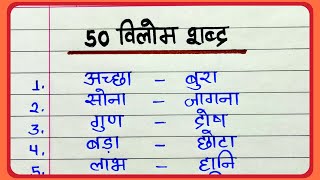 50 विलोम शब्द
1. अच्छा – बुरा
2. सोना – जागना
3. गुण – दोष
4. बड़ा – छोटा
5. लाभ – हानि